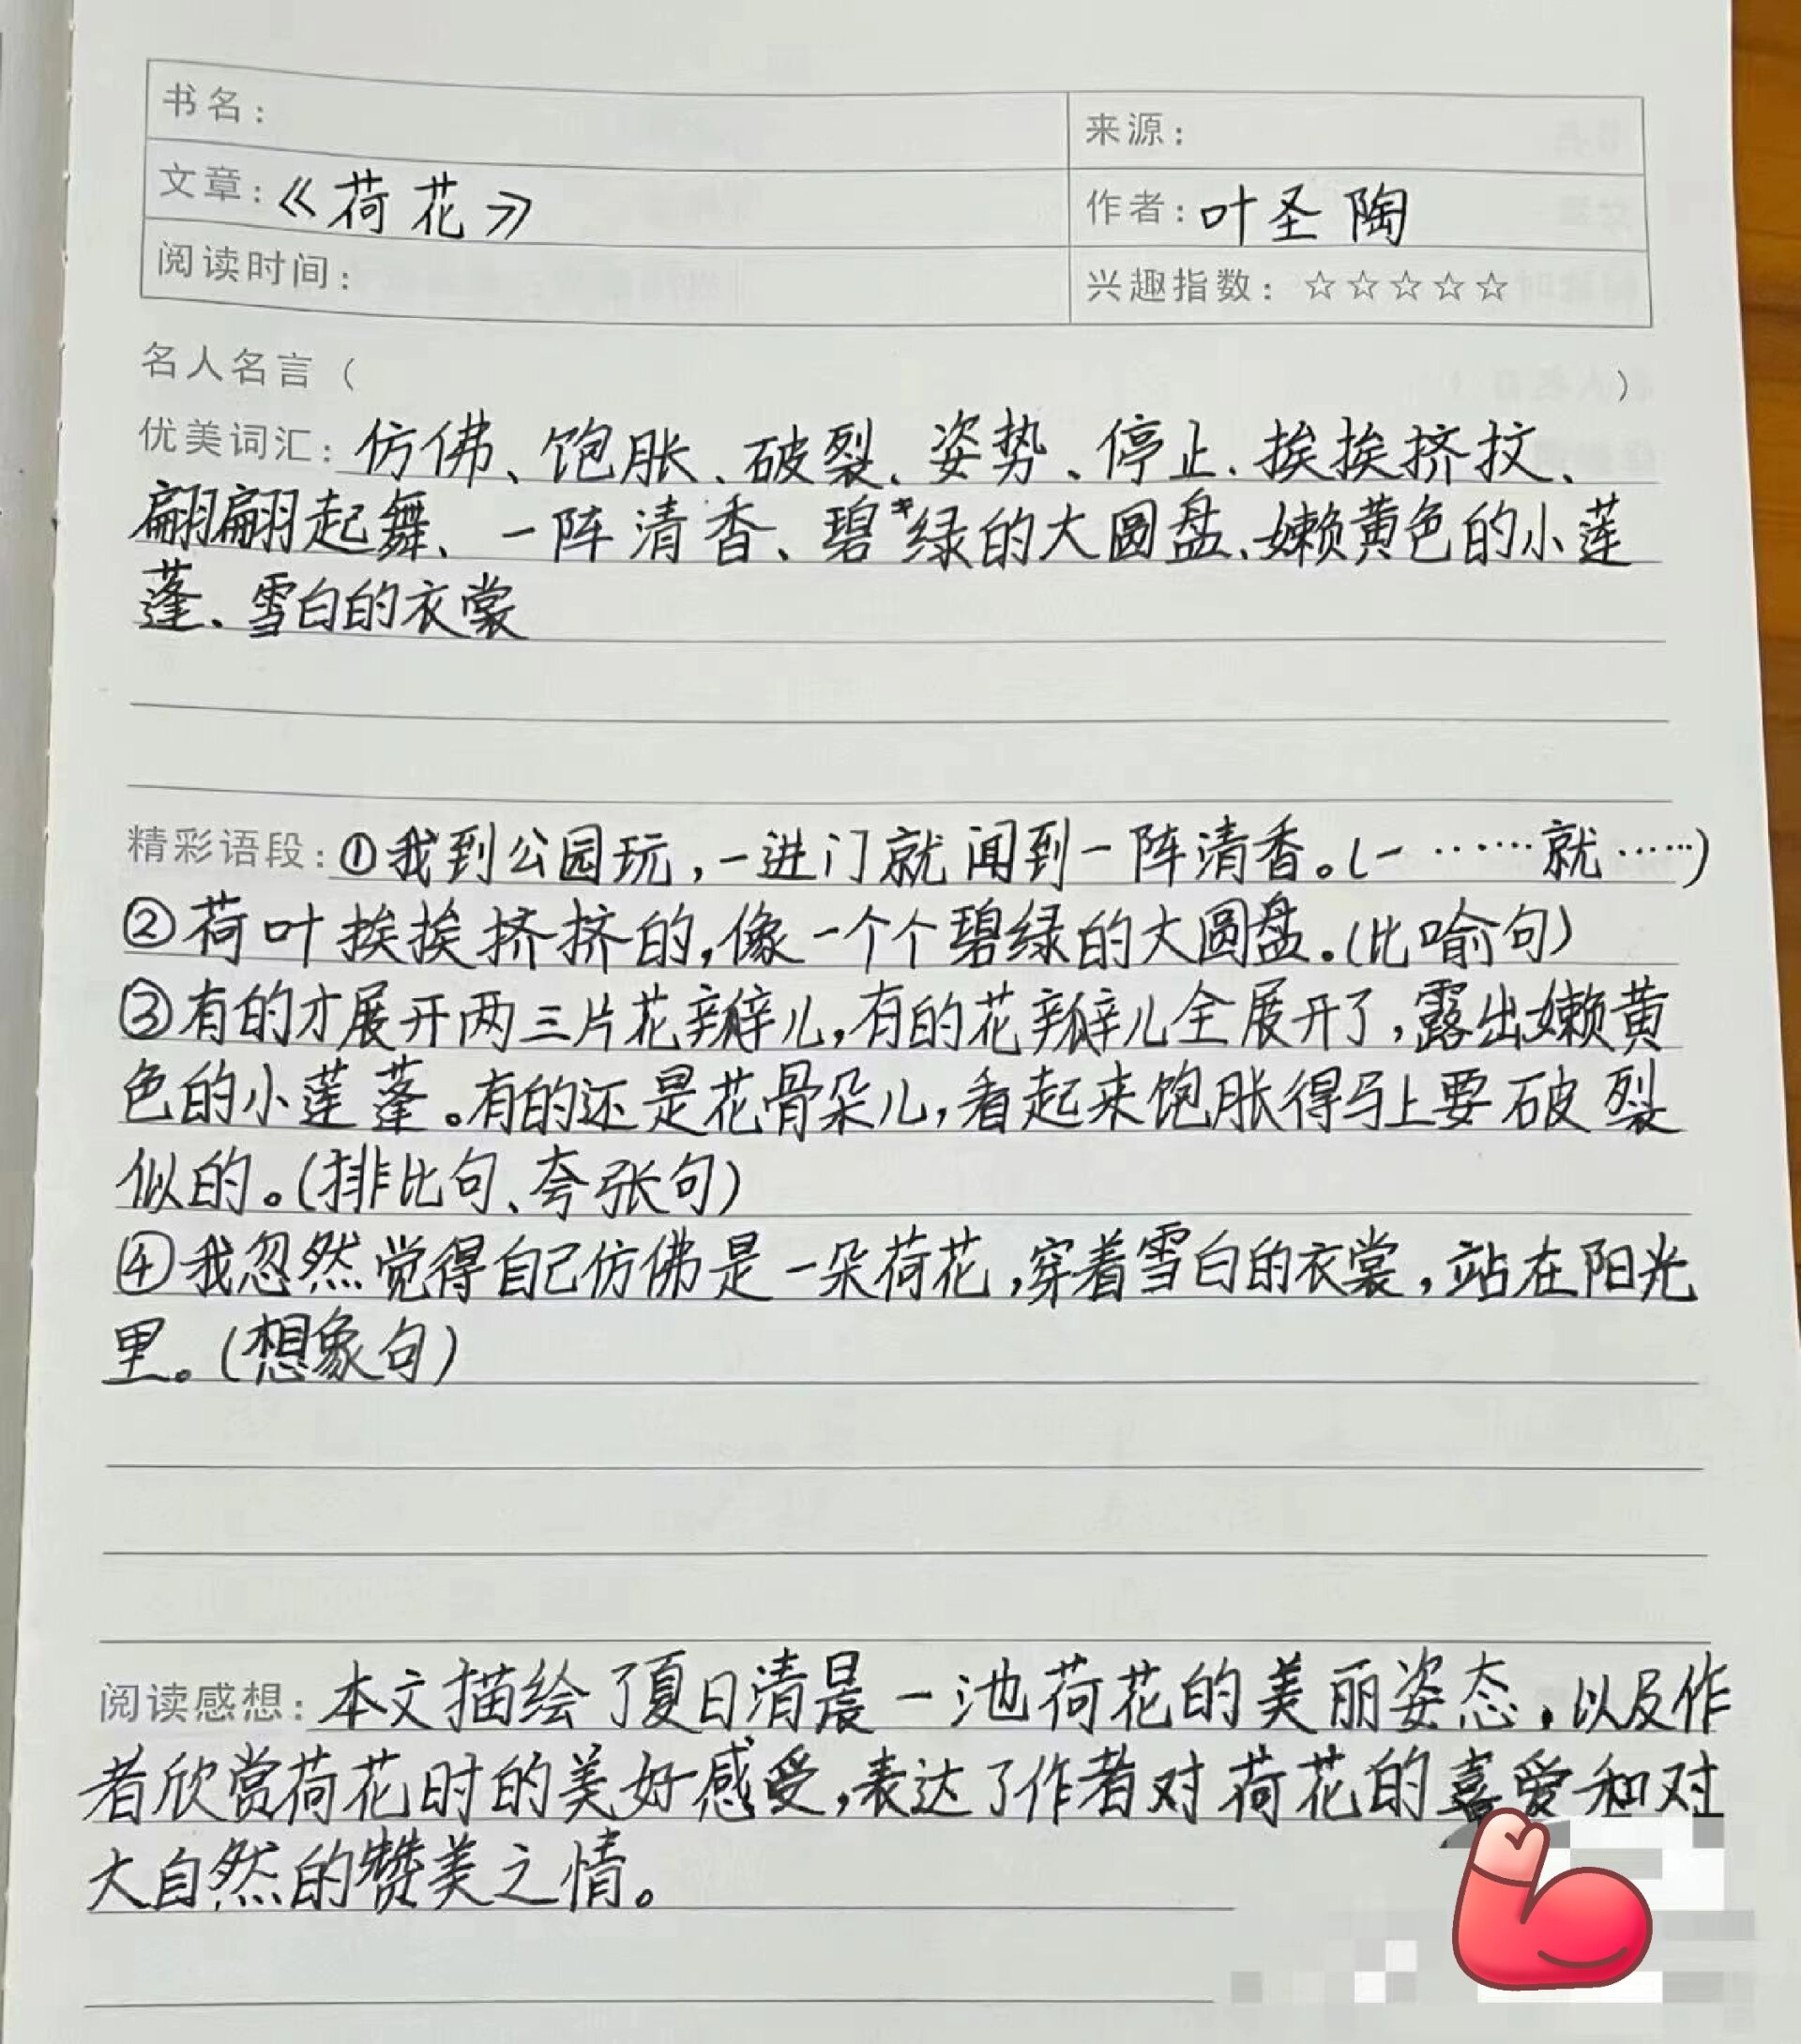 书名：
来源：
文章：《荷花》
作者：叶圣陶
阅读时间：
兴趣指数：☆☆☆☆☆
名人名言（ ）
优美词汇：仿佛、饱胀、破裂、姿势、停止、挨挨挤挤、
翩翩起舞、一阵清香、碧绿的大圆盘、嫩黄色的小莲
蓬、雪白的衣裳
精彩语段：①我到公园玩，一进门就闻到一阵清香。(一……就……)
②荷叶挨挨挤挤的，像一个个碧绿的大圆盘。(比喻句)
③有的才展开两三片花瓣儿，有的花瓣儿全展开了，露出嫩黄
色的小莲蓬。有的还是花骨朵儿，看起来饱胀得马上要破裂
似的。(排比句、夸张句)
④我忽然觉得自己仿佛是一朵荷花，穿着雪白的衣裳，站在阳光
里。(想象句)
阅读感想：本文描绘了夏日清晨一池荷花的美丽姿态，以及作
者欣赏荷花时的美好感受，表达了作者对荷花的喜爱和对
大自然的赞美之情。